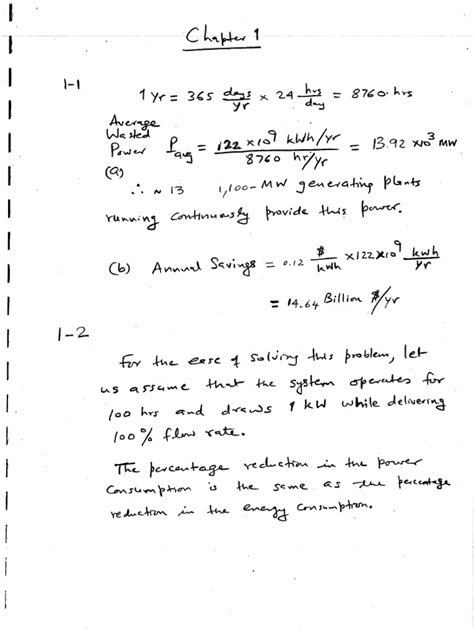 Chapter 1
1-1
1 yr = 365 days/yr × 24 hrs/day = 8760 hrs
Average
Wasted
Power Pavg = 122 × 10^9 kWh/yr / 8760 hr/yr = 13.92 × 10^3 MW
(a)
∴ ~ 13 1,100-MW generating plants
running continuously provide this power.
(b) Annual Savings = 0.12 $/kWh × 122 × 10^9 kWh/yr
= 14.64 Billion $/yr
1-2
For the ease of solving this problem, let
us assume that the system operates for
100 hrs and draws 1 kW while delivering
100% flow rate.
The percentage reduction in the power
consumption is the same as the percentage
reduction in the energy consumption.